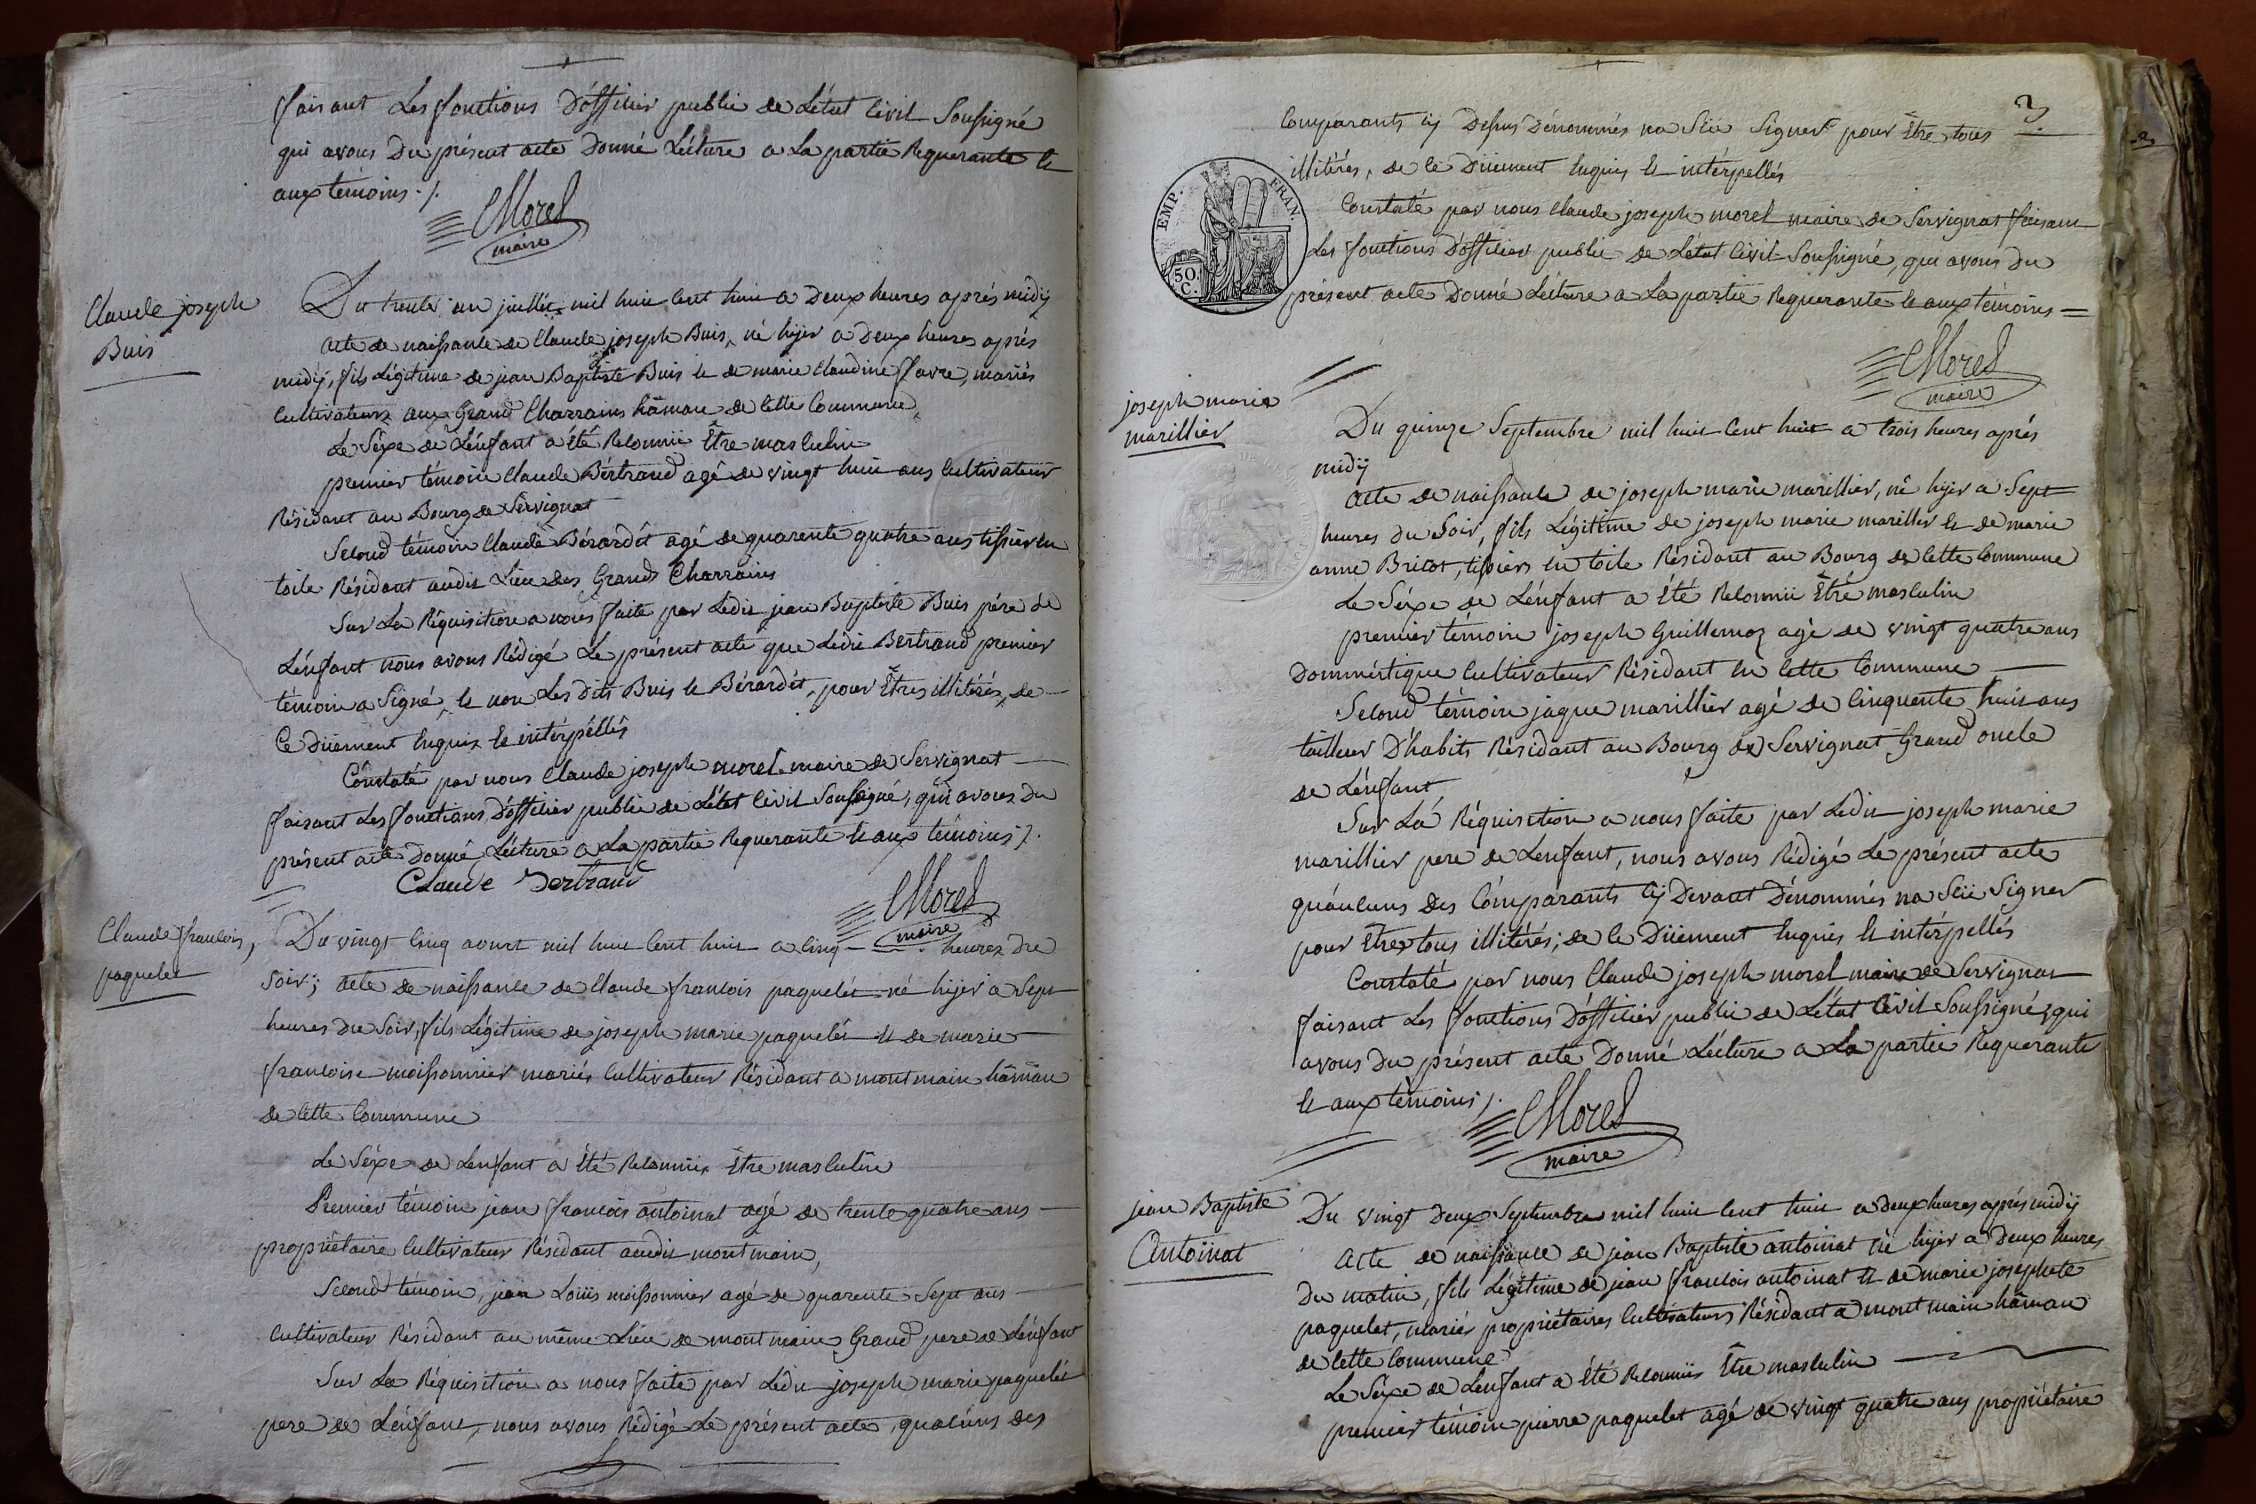 faisant Les fonctions D'officier public de L'état Civil Soussigné
qui avons Du présent acte Donné Lécture a La partie Requerante et
aux témoins ./.
Morel
maire
Claude joseph
Buis
Du trente un juillet mil huit Cent huit a Deux heures aprés midÿ
acte de naissance de Claude joseph Buis, né hijer a Deux heures aprés
midÿ, fils Légitime de jean Baptiste Buis et de marie Claudine favre, mariés
Cultivateurs aux Grand Charrains hâmau de Cette Commune,
Le Séxe de L'énfant a été Reconnü Être masculin
premier témoin Claude Bértrand agé de vingt huit ans Cultivateur
Résidant au Bourg de Servignat
Second témoin Claude Bérardét agé de quarente quatre ans tissier en
toile Résidant audit Lieu des Grands Charrains
Sur La Réquisition a nous faite par Ledit jean Baptiste Buis pére de
L'énfant nous avons Rédigé Le présent acte que Ledit Bertrand premier
témoin a Signé, et non Les dits Buis et Bérardét, pour Êtres illitérés, de
Ce Düement Enquis et intérpéllés
Constaté par nous Claude joseph morel maire de Servignat
faisant Les fonctions D'officier public de L'état Civil Soussigné, qui avons Du
présent acte Donné Lécture a La partie Requerante et aux témoins ./.
Claude Bertrand
Morel
maire
Claude francois,
paquelet
Du vingt Cinq aoust mil huit Cent huit a Cinq heures Du
Soir; acte de naissance de Claude francois paquelét né hijer a Sept
heures du Soir, fils Légitime de joseph marie paquelét et de marie
francoise moissonnier mariés Cultivateur Résidant a montmain hâmau
de Cette Commune
Le Séxe de Lenfant a Été Reconnü Être masculin
Premier témoin jean francois antoinat agé de trente quatre ans
propriétaire Cultivateur Résidant audit montmain,
Second témoin, jean Loüis moissonnier agé de quarente Sept ans
Cultivateur Résidant au même Lieu de montmain Grand pere de L'énfant
Sur La Réquisition a nous faite par Ledit joseph marie paquelét
pere de L'énfant, nous avons Rédigé Le présent acte, qu'aucuns des
3
2
Comparants Cÿ Dessus Dénommés na Sçü Signer pour Être tous
illitérés, de Ce Düement Enquis et intérpellés
Constaté par nous Claude joseph morel maire de Servignat faisant
Les fonctions D'officier public de L'état Civil Soussigné, qui avons Du
présent acte Donné Lécture a La partie Requerante et aux témoins =
EMP. FRAN.
50.
C.
Morel
maire
joseph marie
marillier
Du quinze Septembre mil huit Cent huit a trois heures aprés
midÿ
acte de naissance de joseph marie marillier, né hijer a Sept
heures du Soir, fils Légitime de joseph marie marillier et de marie
anne Bricot, tissiers en toile Résidant au Bourg de Cette Commune
Le Séxe de L'énfant a Été Reconnü Être masculin
premier témoin joseph Guillemoz agé de vingt quatre ans
Domméstique Cultivateur Résidant en Cette Commune
Second témoin jaque marillier agé de Cinquente huit ans
tailleur D'habits Résidant au Bourg de Servignat Grand oncle
de L'énfant
Sur Lá Réquisition a nous faite par Ledit joseph marie
marillier pere de Lenfant, nous avons Rédigé Le présent acte
qu'áucuns des Cómparants Cÿ Devant Dénommés na Sçü Signer
pour Êtres tous illitérés; de Ce Düement Enquis et intérpellés
Constaté par nous Claude joseph morel maire de Servignat
faisant Les fonctions D'officier public de L'état Civil Soussigné, qui
avons Du présent acte Donné Lécture a La partie Requerante
et aux témoins ./.
Morel
maire
jean Baptiste
Antoinat
Du vingt Deux Septembre mil huit Cent huit a Deux heures aprés midÿ
Acte de naissance de jean Baptiste antoinat né hijer a Deux heures
Du matin, fils Légitime de jean francois antoinat et de marie josephete
paquelet, mariés propriétaires Cultivateurs Résidant a montmain hâmau
de Cette Commune
Le Séxe de L'enfant a Été Reconnüs Être masculin
premier témoin pierre paquelet agé de vingt quatre ans propriétaire